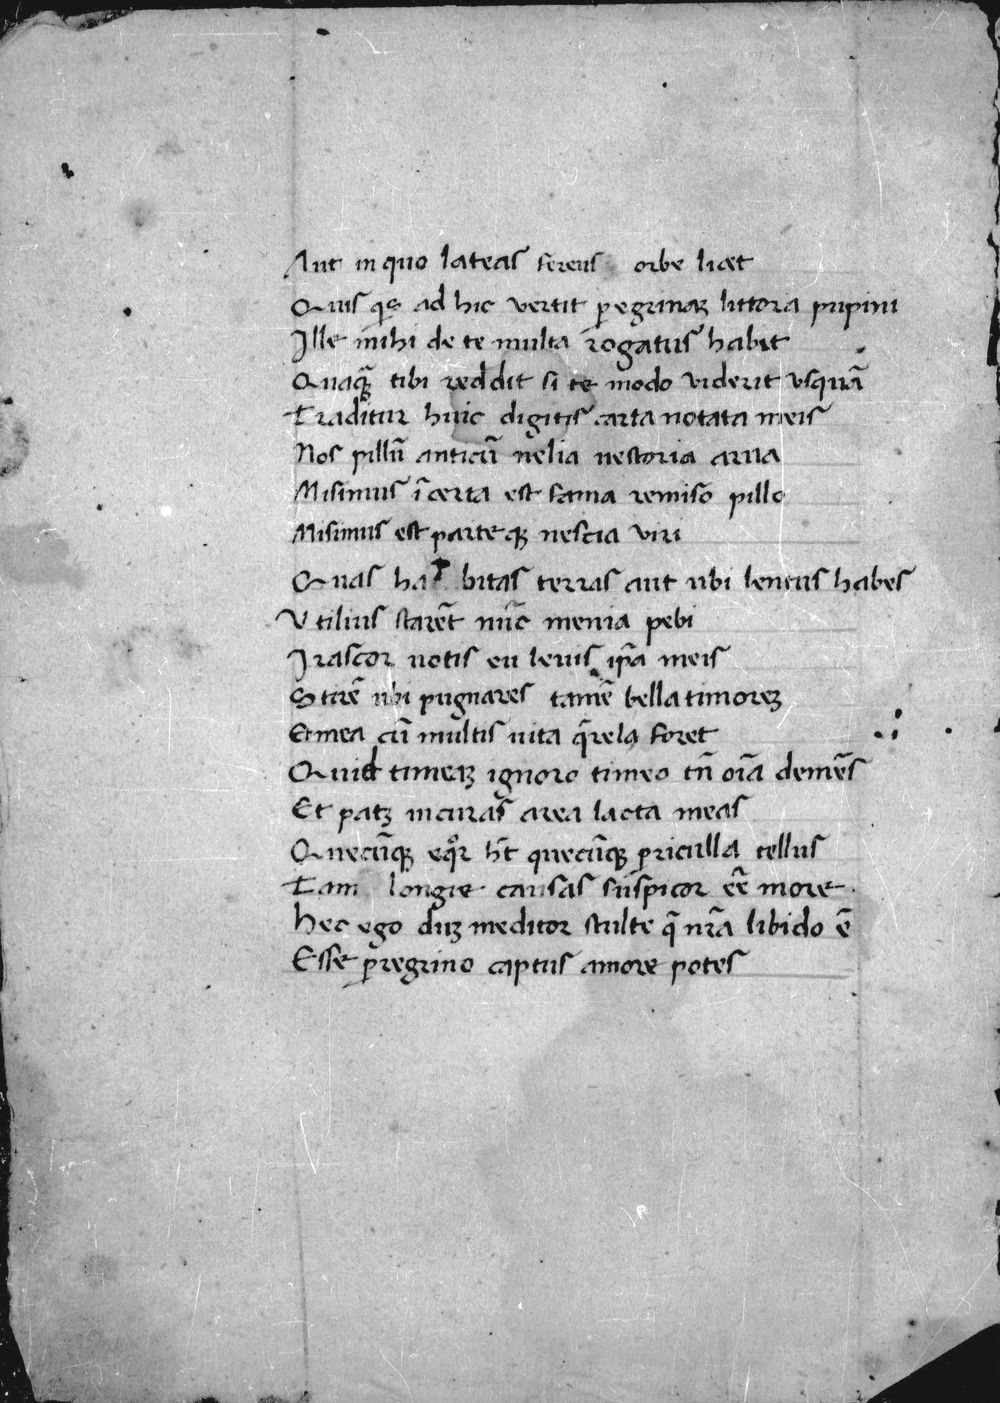 Aut in quo lateas ferreus orbe licet
Quis qs ad hic vertit peregrinaꝫ littora pupini
Ille mihi de te multa rogatus habit
Quaq̃ tibi reddit si te modo viderit vsquã
Traditur huic digitis carta notata meis
Nos pillũ anticũ nelia nestoria arua
Misimus ĩcerta est fama remiso pillo
Misimus est parteqꝫ nescia viri
Quas ha bitas terras aut ubi lentus habes
Vtilius starẽt nũc menia pebi
Irascor uotis eu leuis ip̃a meis
Scirẽ ubi pugnares tamẽ bella timoreꝫ
Et mea cũ multis uita q̃rela foret
Quid timeaꝫ ignoro timeo tñ oĩa demẽs
Et patꝫ in curas area lacta meas
Quecũqꝫ eqᷣor hñt quecũqꝫ pericula tellus
Tam longie causas suspicor eẽ more
Hec ego duꝫ meditor stulte q̃ nr̃a libido ẽ
Esse peregrino captus amore potes